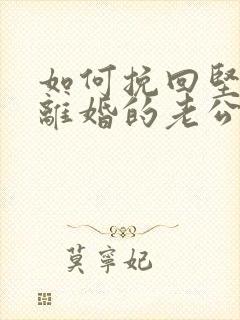 如何挽回堅
離婚的老公
莫寧妃